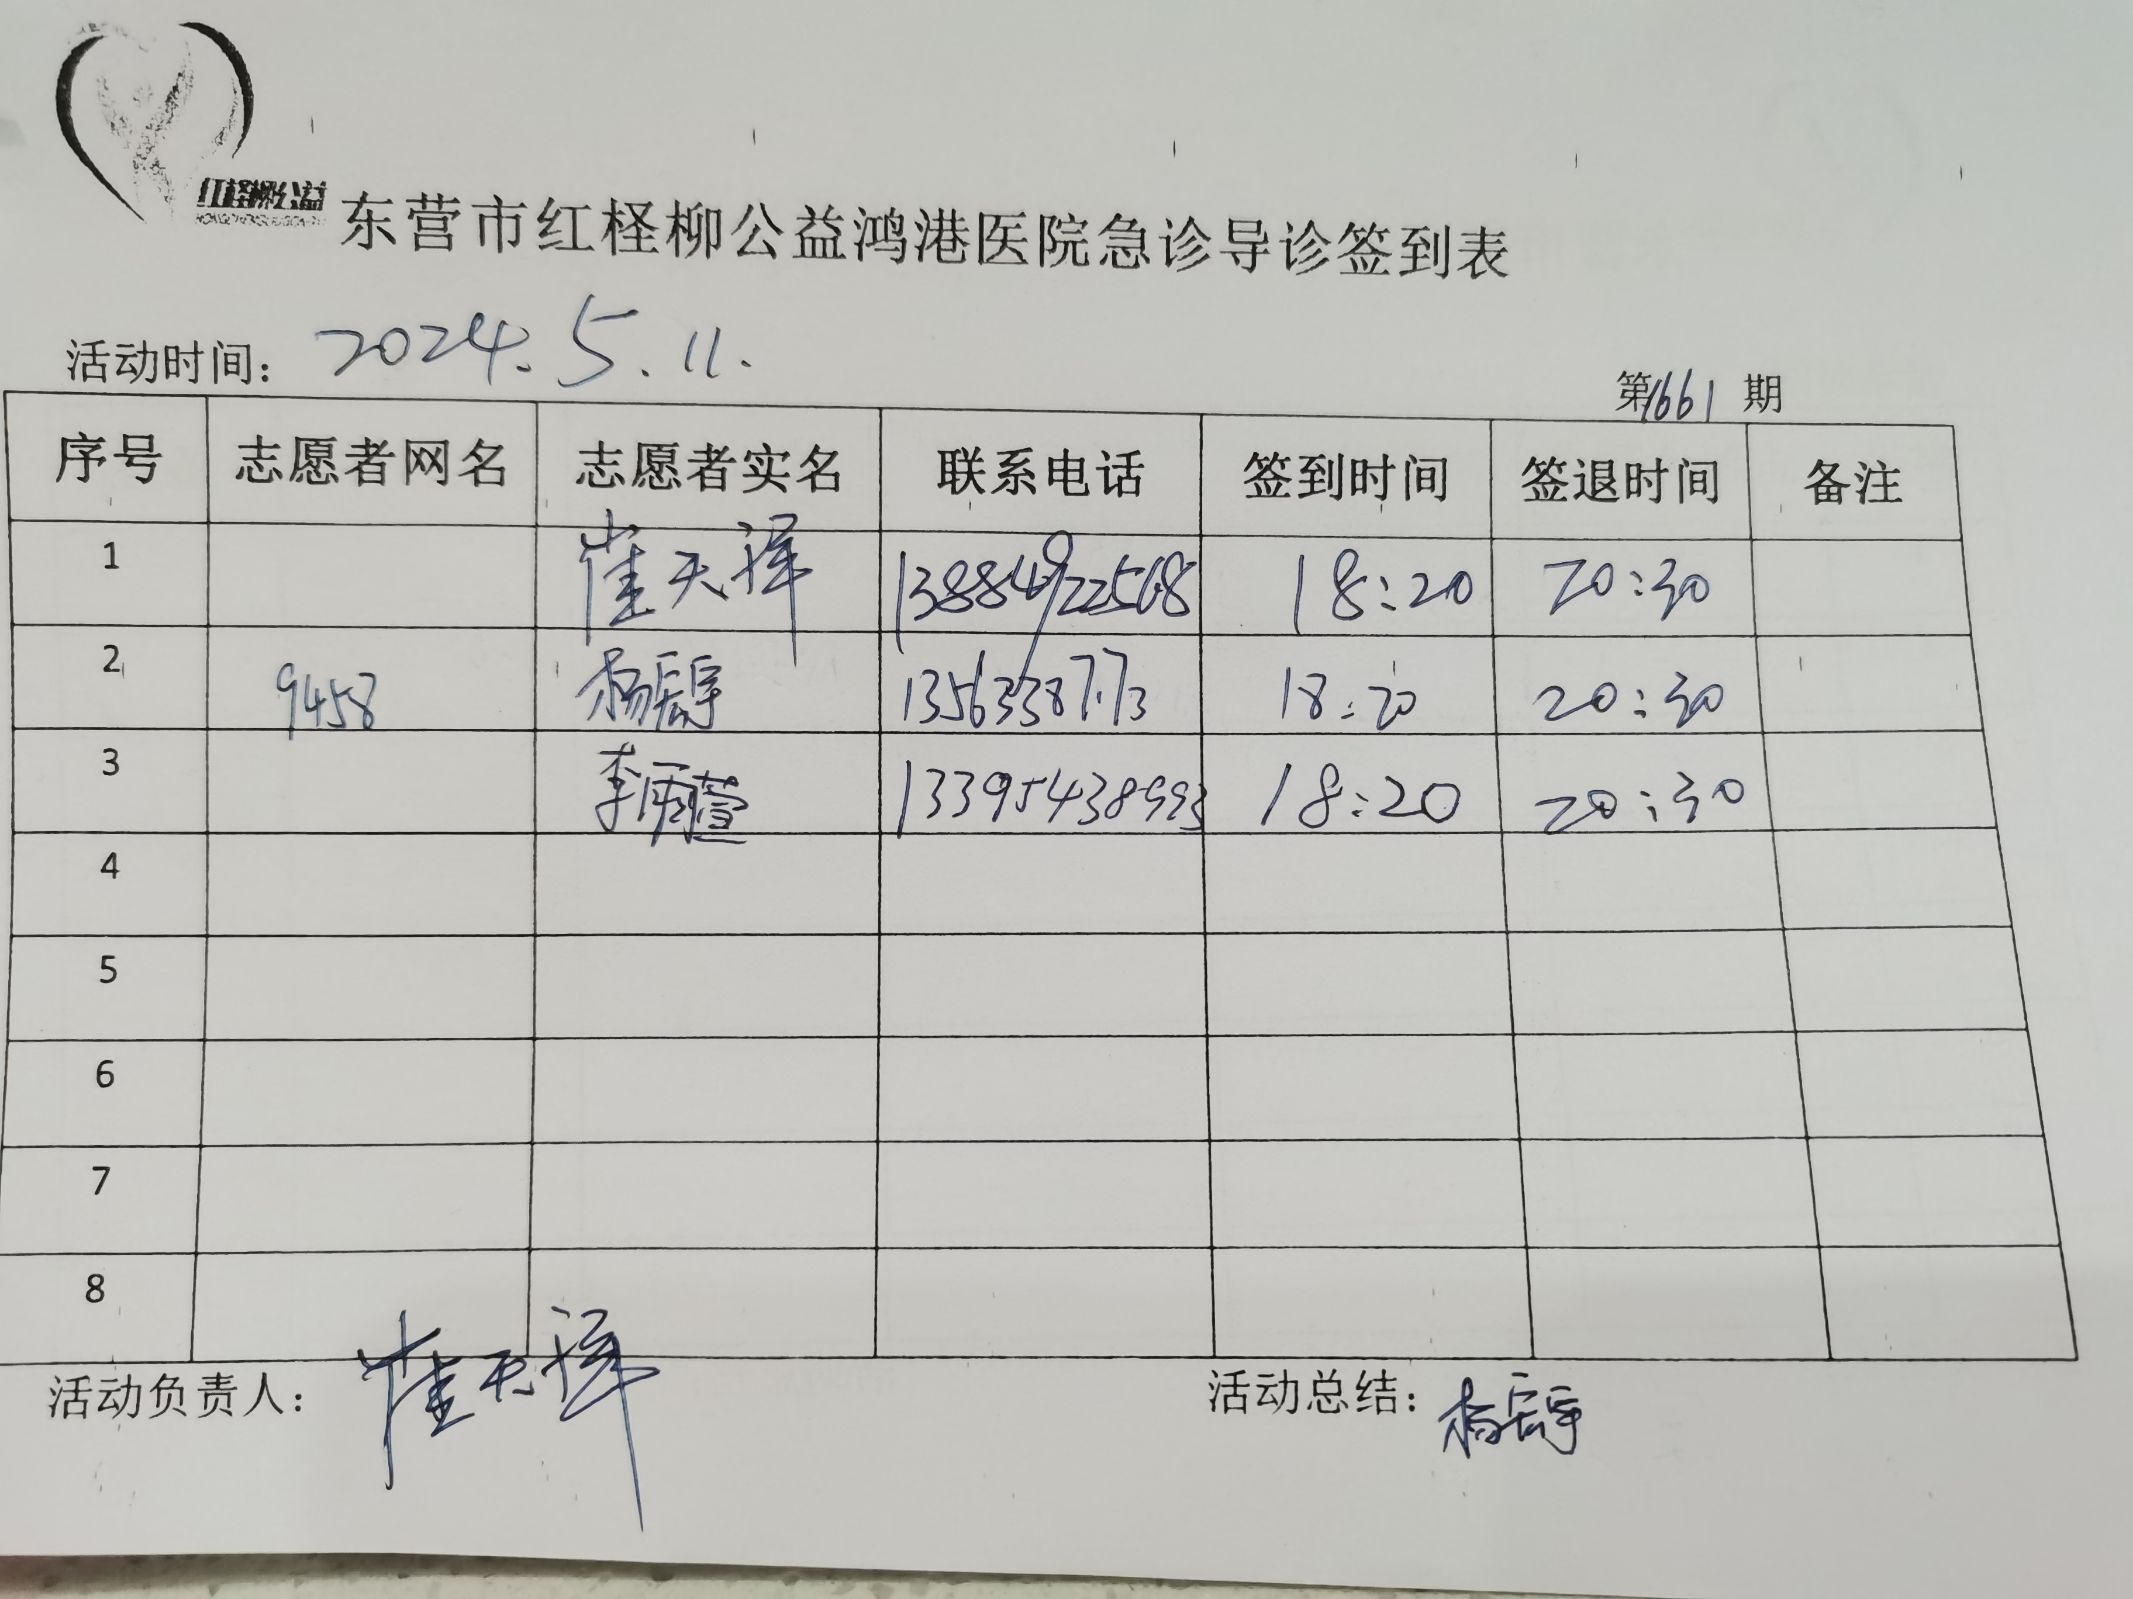 红柽柳公益
东营市红柽柳公益鸿港医院急诊导诊签到表
活动时间： 2024.5.11.
第1661期
序号 志愿者网名 志愿者实名 联系电话 签到时间 签退时间 备注
1 崔天泽 18:20 20:30
2 9458 杨 18:20 20:30
3 李雨萱 13395438993 18:20 20:30
4
5
6
7
8
活动负责人： 崔天泽 活动总结： 杨